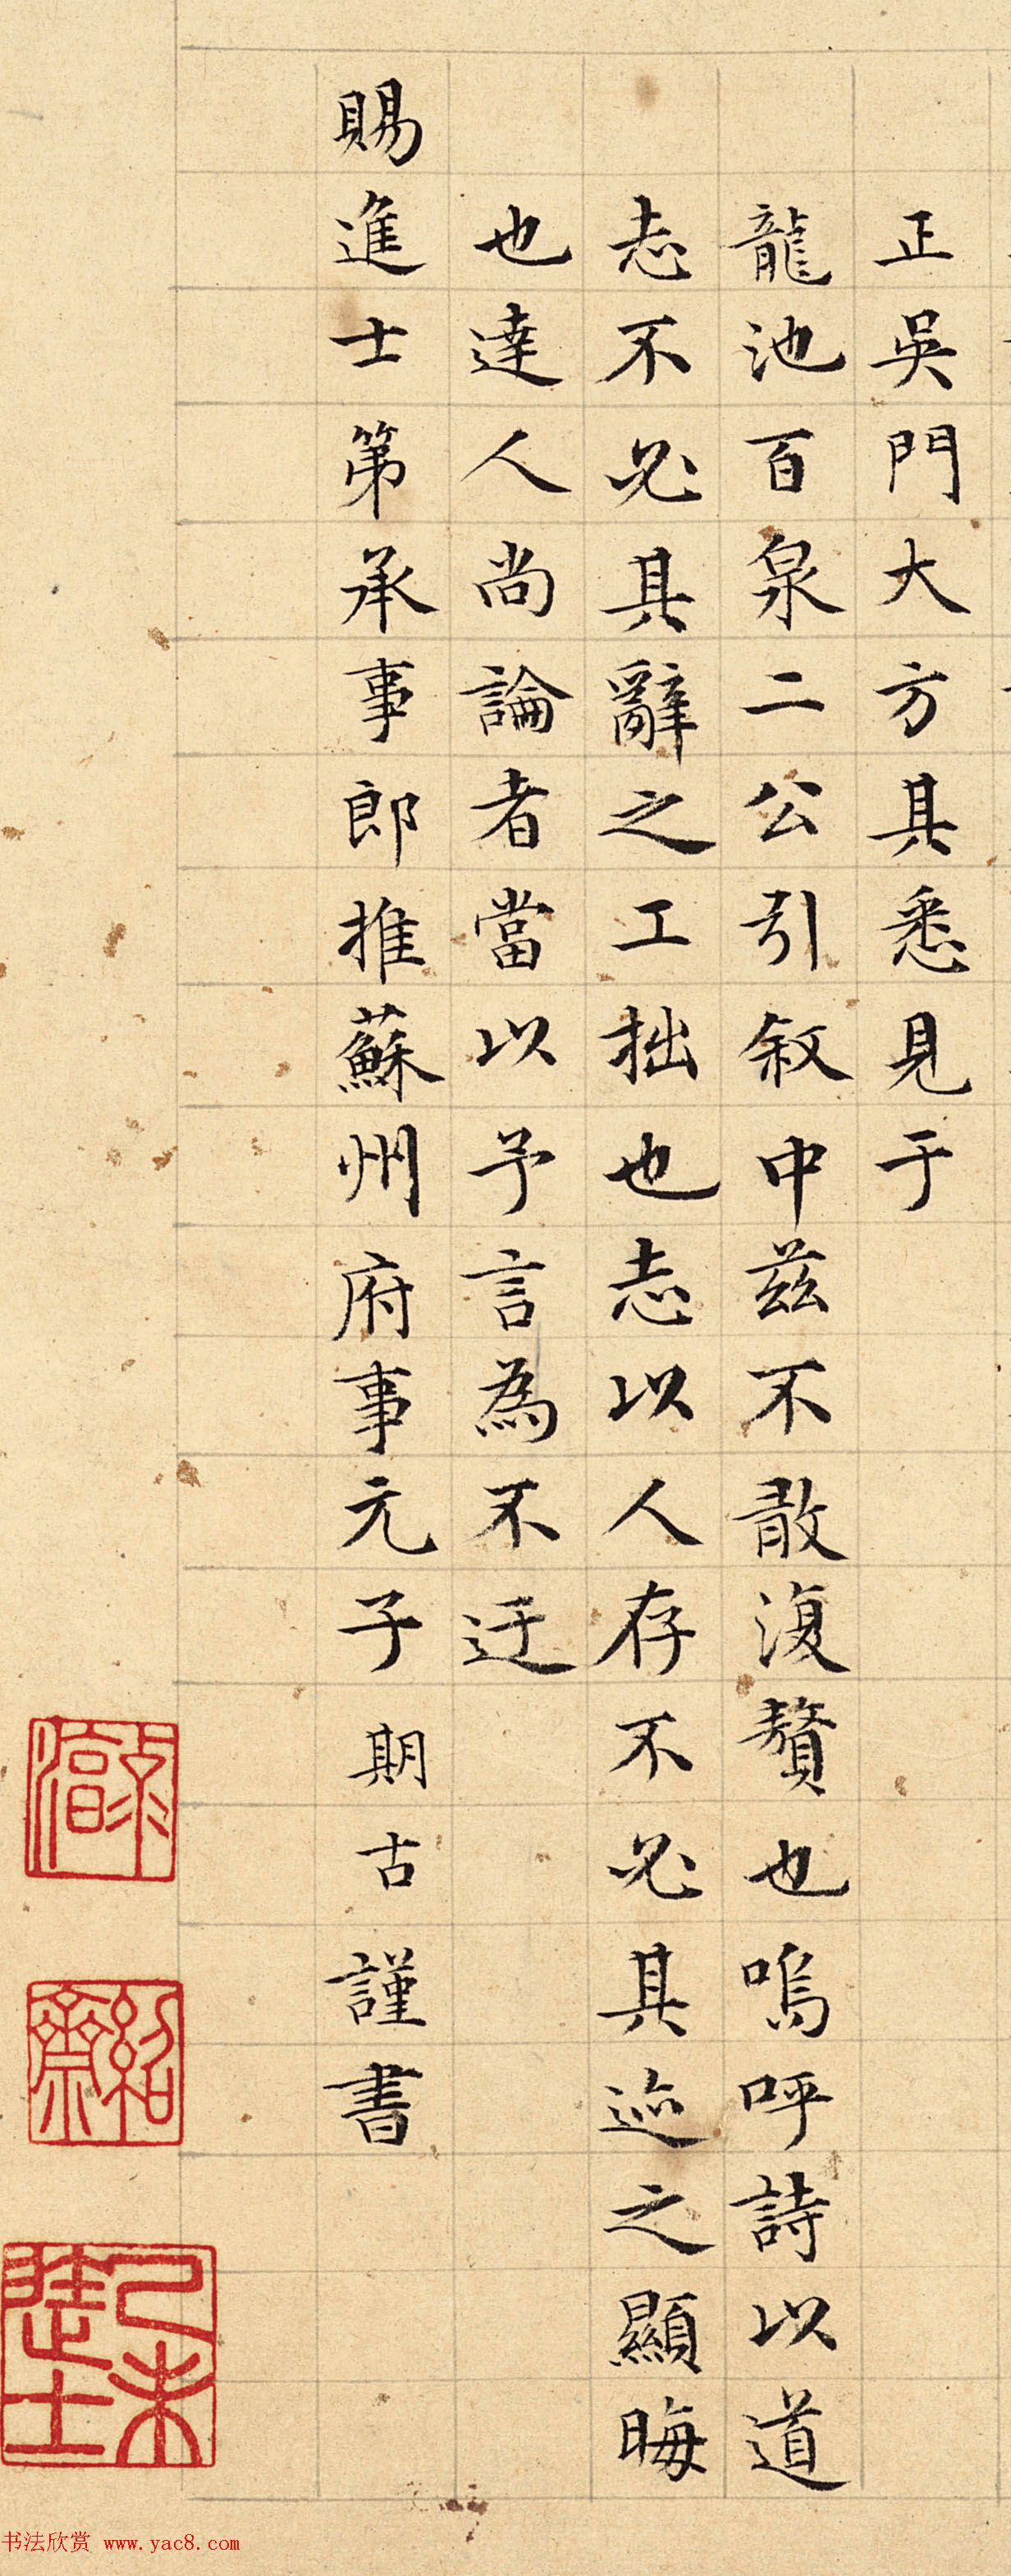 正吳門大方具悉見于
龍池百泉二公引敘中茲不敢復贅也嗚呼詩以道
志不必具辭之工拙也志以人存不必具迹之顯晦
也達人尚論者當以予言為不迂
賜進士第承事郎推蘇州府事元子期古謹書
紹齋
己未進士
书法欣赏 www.yac8.com